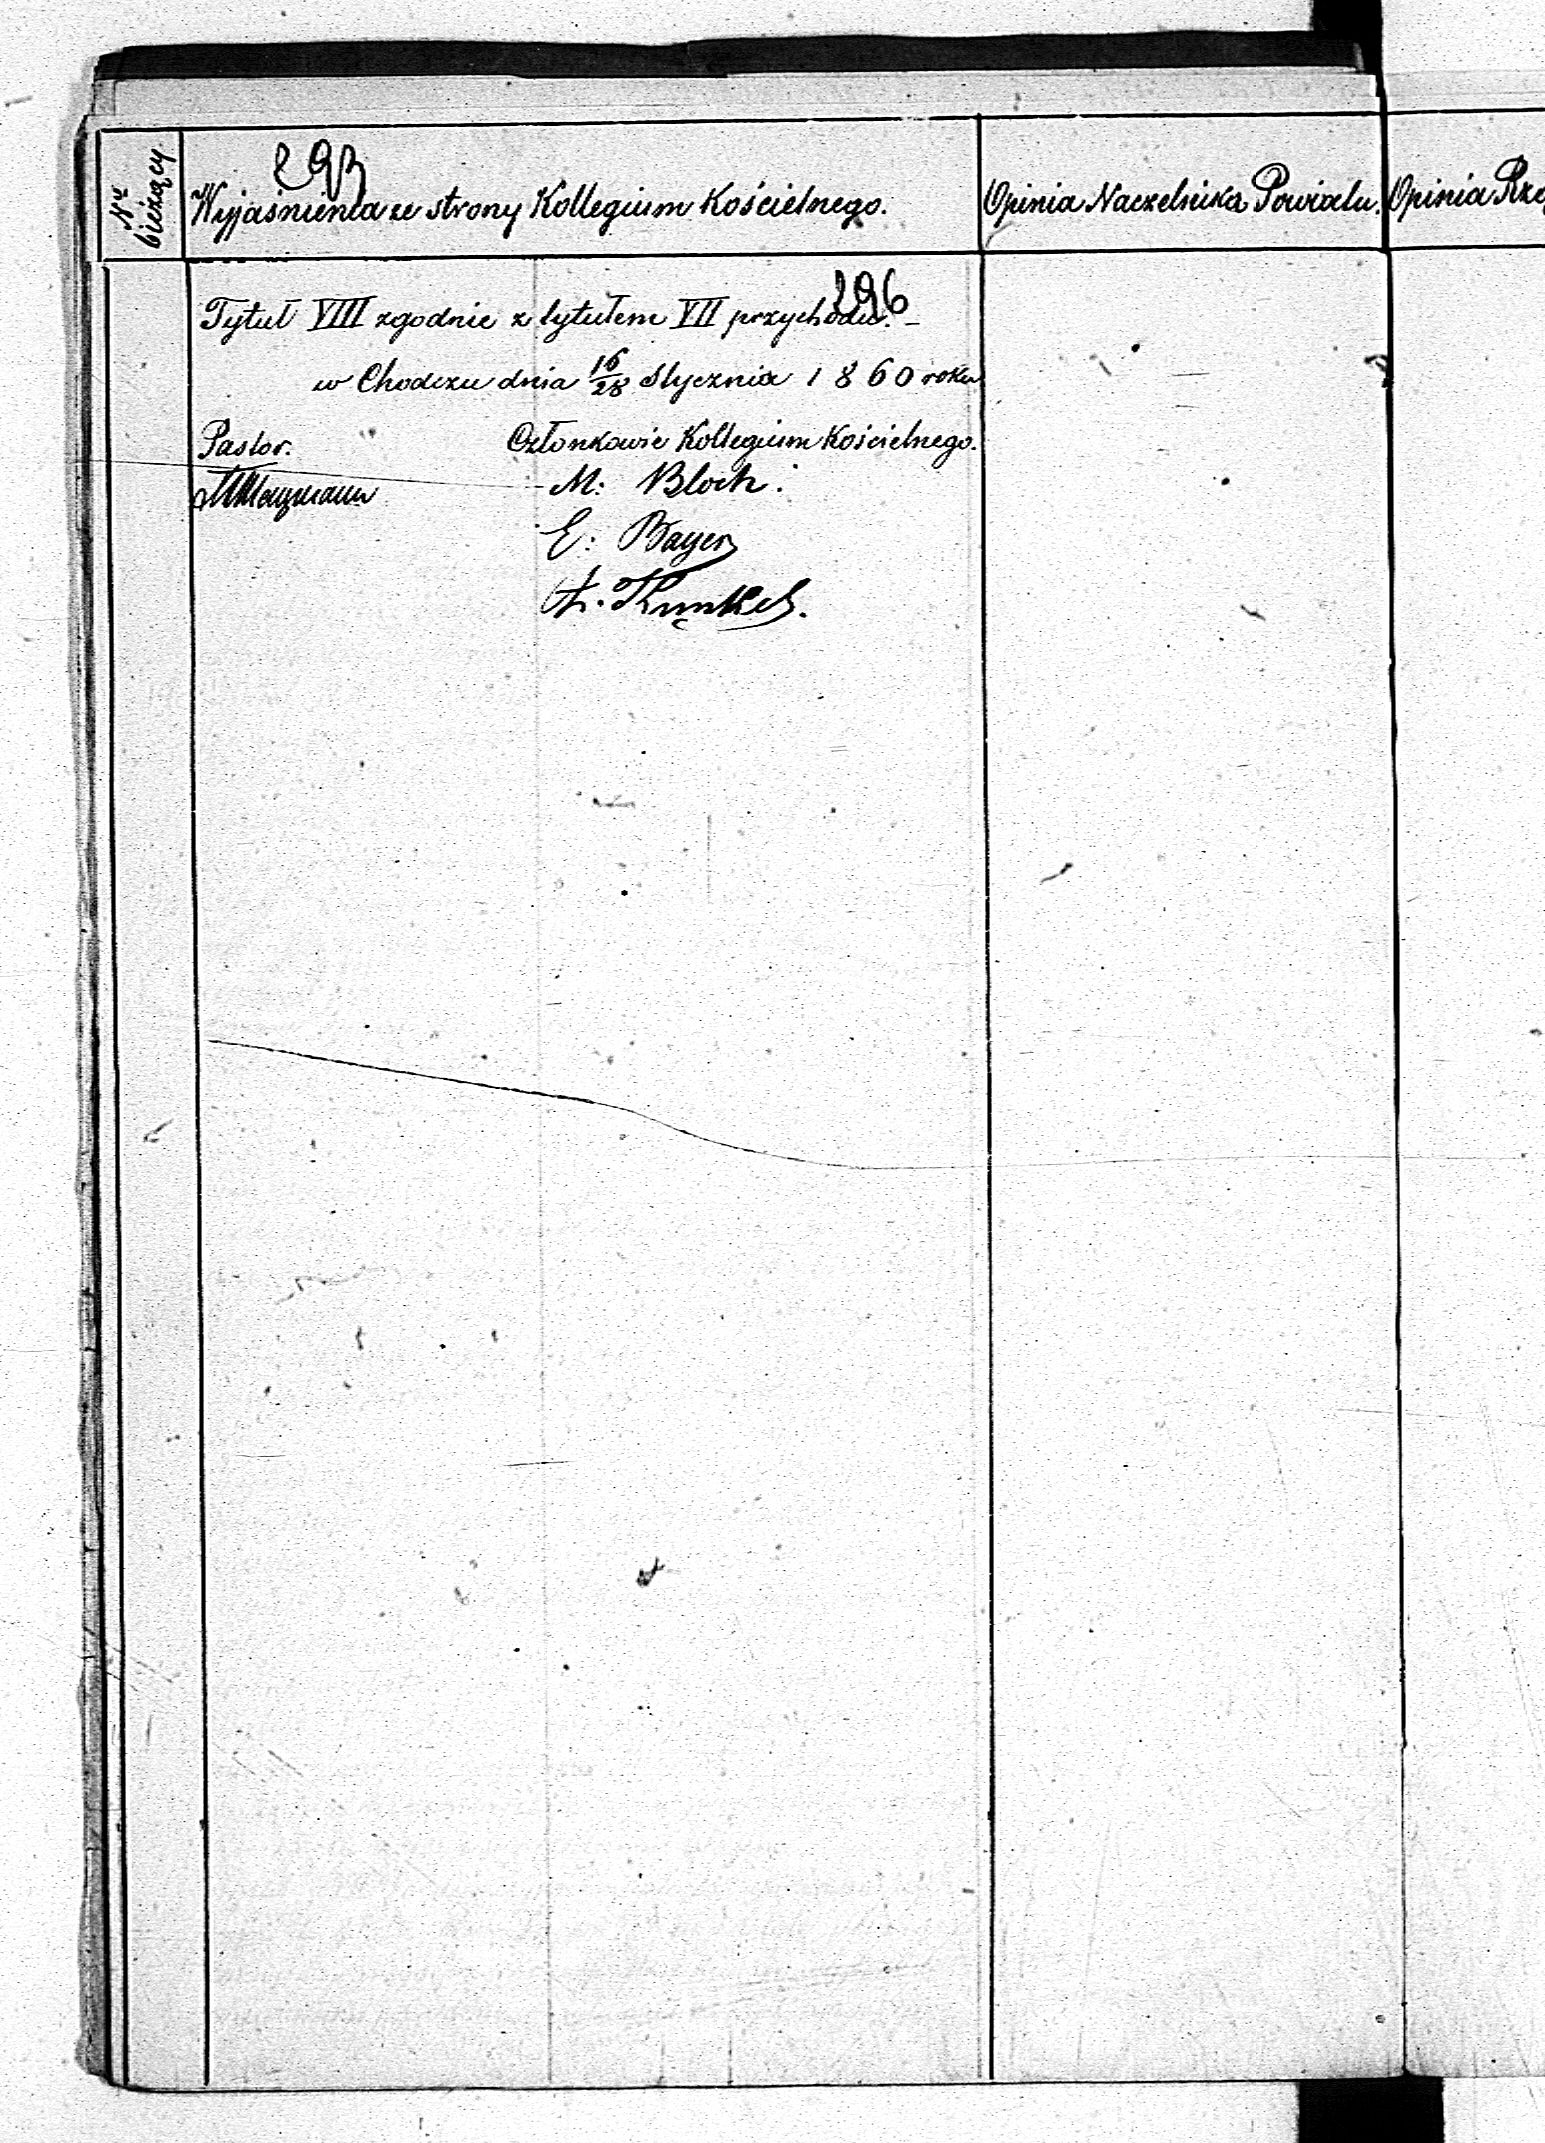 293
Nr bieżący
Wyjaśnienia ze strony Kollegium Kościelnego.
Opinia Naczelnika Powiatu.
Opinia Rzą
296
Tytuł VIII zgodnie z tytułem VII przychodu. –
w Chodczu dnia 16/28 Stycznia 1860 roku
Pastor.
Członkowie Kollegium Kościelnego.
M: Bloch.
E: Bayer
A. Kunkel.